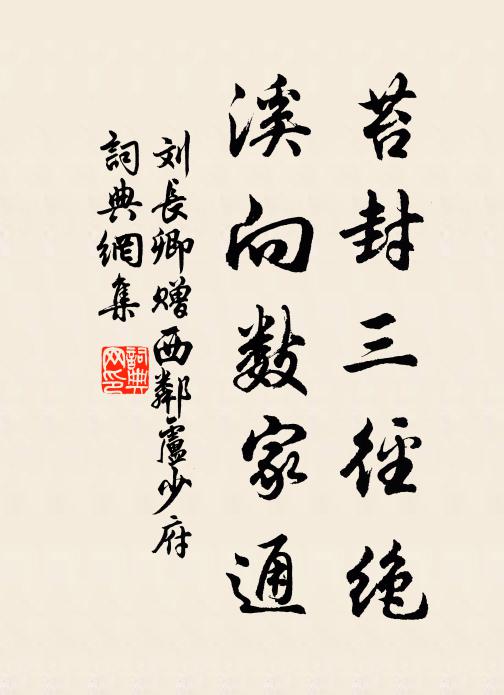 苔封三径绝
溪向数家通
刘長卿赠西鄰盧少府
詞典網集
詞典网印